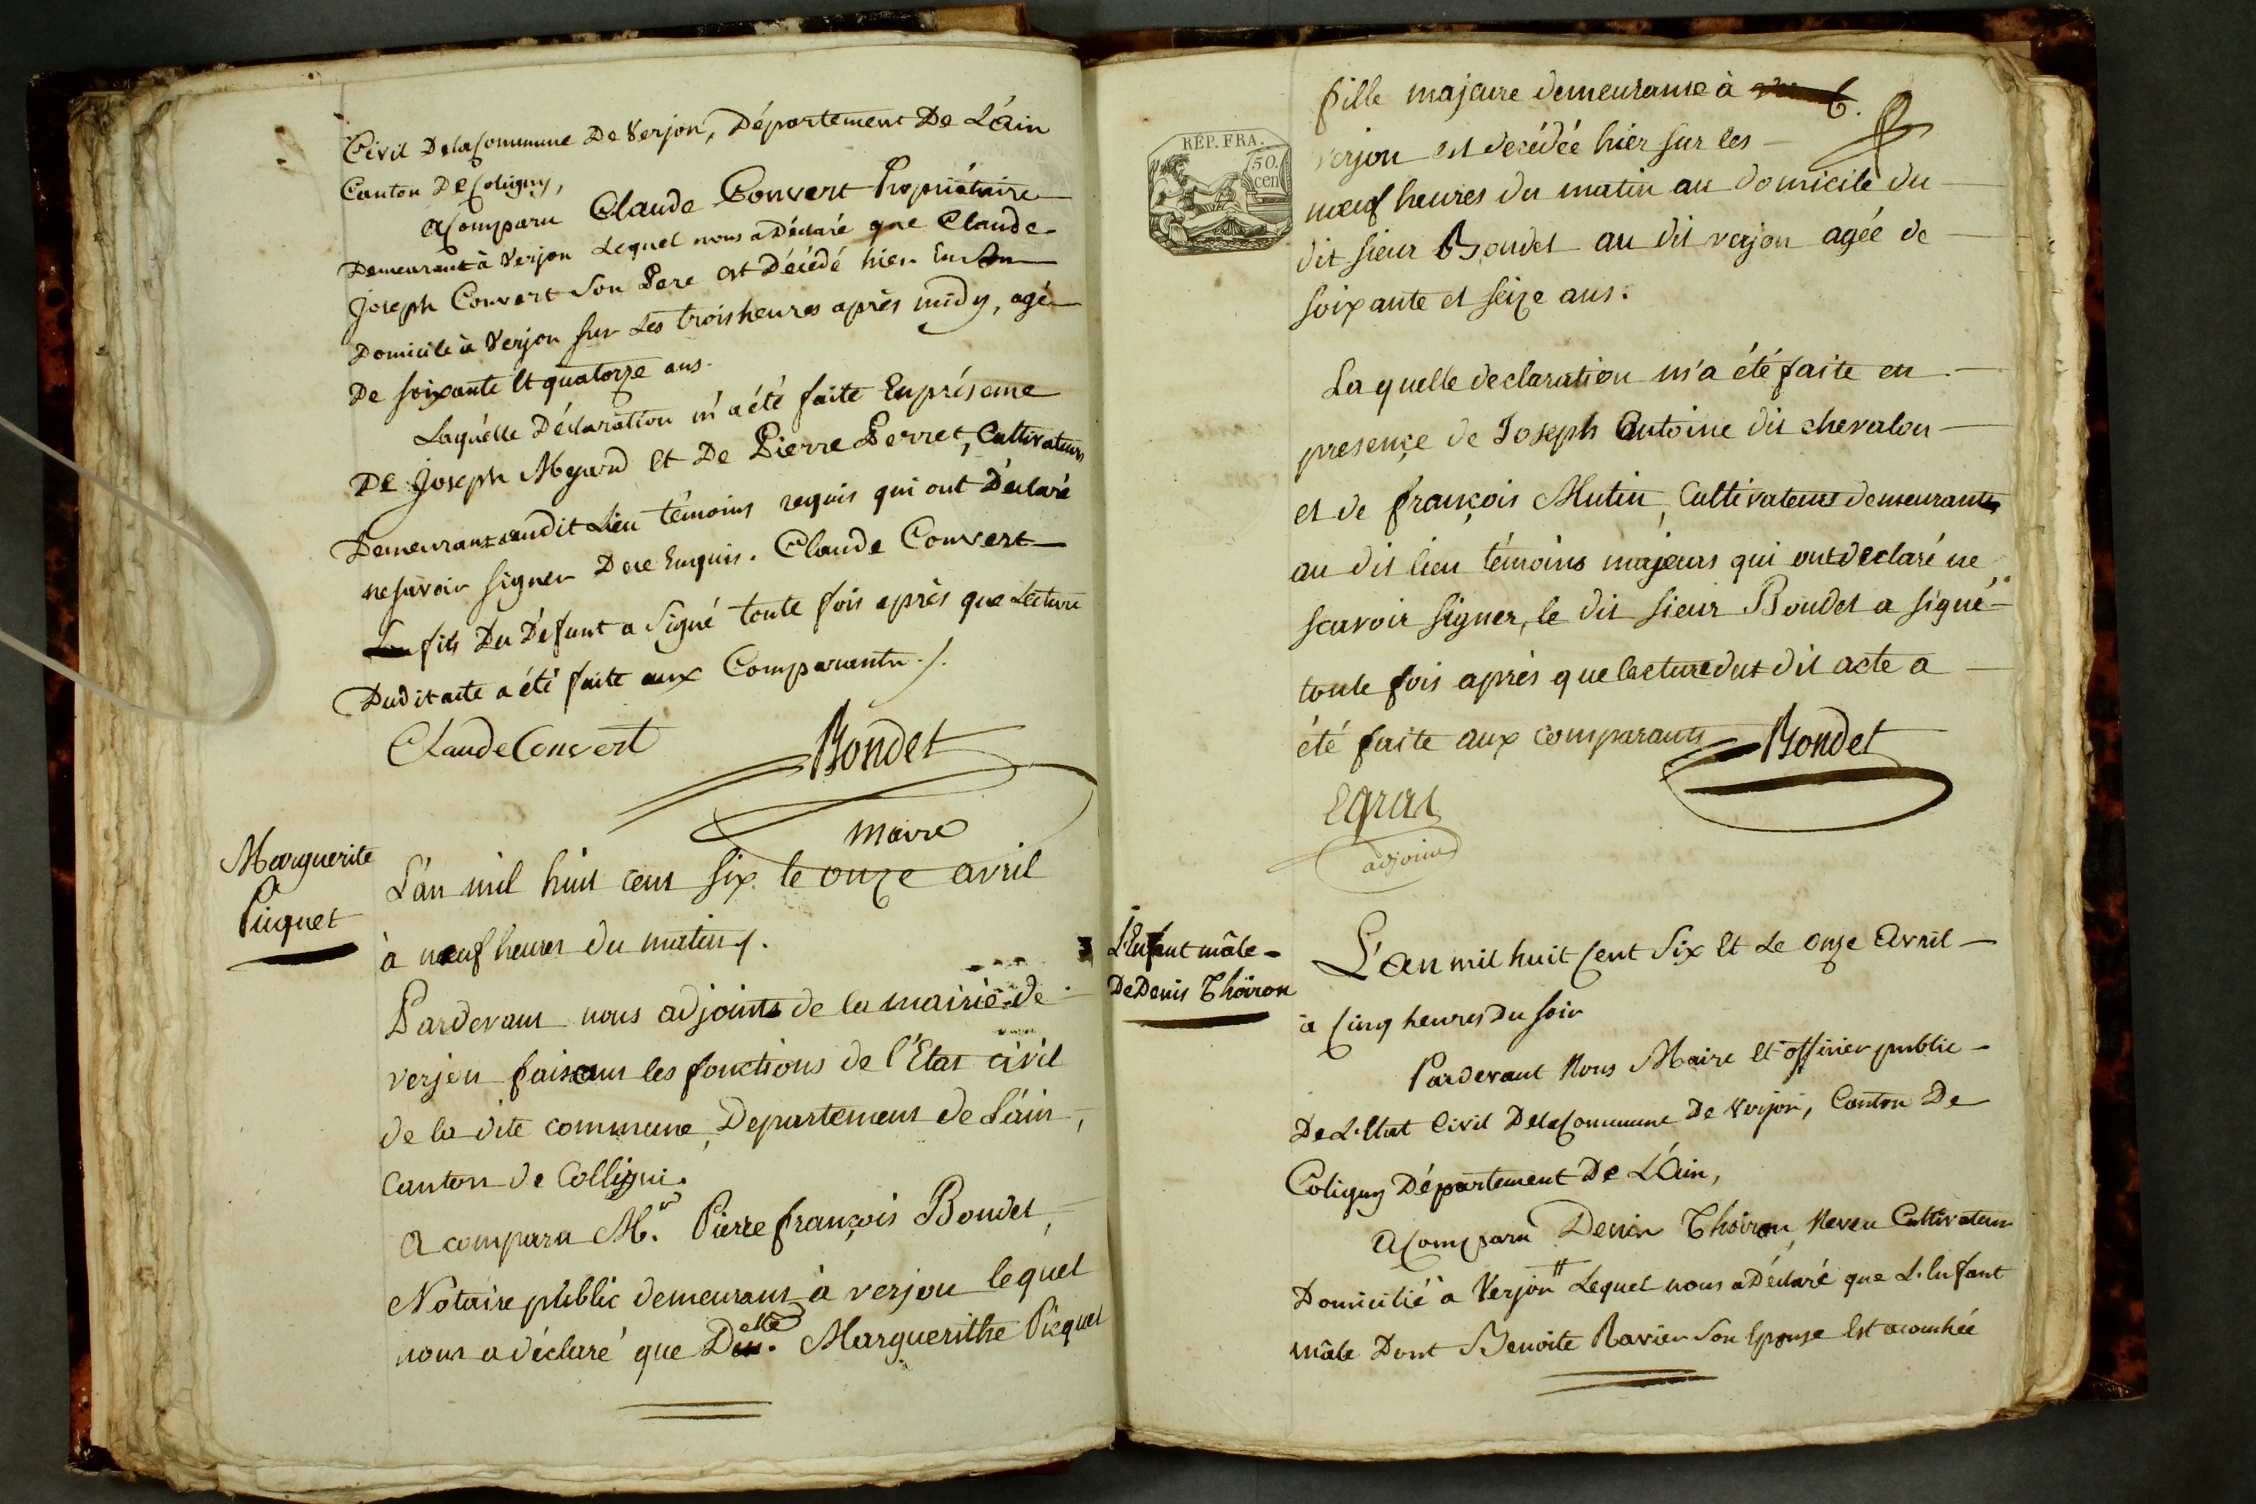 Civil DelaCommune De Verjon, Département De L'Ain
Canton De Coligny,
A Comparu Claude Convert Propriétaire
Demeurant à Verjon Lequel nous a Déclaré que Claude
Joseph Convert Son Pere est Décédé hier En Son
Domicile à Verjon sur Les trois heures après midy, agé
De soixante Et quatorze ans.
Laquelle Déclaration m'a été faite En présence
De Joseph Myard Et De Pierre Perret, Cultivateurs
Demeurant audit Lieu témoins requis qui ont Déclaré
ne savoir signer De ce Enquis. Claude Convert
fils Du Défunt a Signé toute fois après que Lecture
Dudit acte a été faite aux Comparants ./.
Claude Convert
Bondet
maire
Marguerite
Piquet
L'an mil huit cent six le onze avril
à neuf heures du matin /.
Pardevant nous adjoint de la mairie de
verjon faisant les fonctions de l'Etat civil
de la dite commune, Departement de L'ain,
Canton de Colligni.
A comparu Mr. Pierre françois Bondet,
Notaire public demeurant à verjon lequel
nous a déclaré que Delle. Marguerithe Picquet
fille majeure demeurante à
REP. FRA.
50.
cen
verjon est decédée hier sur les
neuf heures du matin au domicile du
dit sieur Bondet au dit verjon agée de
soixante et seize ans.
La quelle declaration m'a été faite en
presençe de Joseph Antoine dit chevalon
et de françois Mutin, Cultivateurs demeurants
au dit lieu témoins majeurs qui ont declaré ne
scavoir signer, le dit sieur Bondet a signé
toute fois après que lecture dut dit acte a
été faite aux comparants
Bondet
Egras
adjoint
L'Enfant mâle
De Denis Thoiron
L'an mil huit Cent Six Et Le onze Avril
à Cinq heures Du soir
Pardevant Nous Maire Et officier public
De L'Etat Civil DelaCommune De Verjon, Canton De
Coligny Département De L'Ain,
A Comparu Denis Thoiron, Neveu Cultivateur
Domicilié à Verjon Lequel nous a Déclaré que L'Enfant
mâle Dont Benoite Ravier Son Epouse Est acouchée